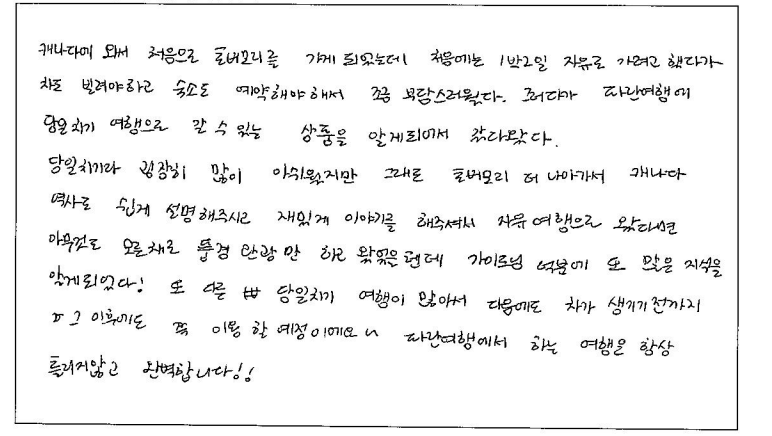 캐나다에 와서 처음으로 토버모리를 가게 되었는데 처음에는 1박2일 자유로 가려고 했다가
차도 빌려야하고 숙소도 예약해야해서 조금 부담스러웠다. 그러다가 파란여행에
당일치기 여행으로 갈 수 있는 상품을 알게되어서 갔다왔다.
당일치기라 굉장히 많이 아쉬웠지만 그래도 토버모리 더 나아가서 캐나다
역사도 쉽게 설명해주시고 재밌게 이야기를 해주셔서 자유여행으로 왔다면
아무것도 모른채로 풍경 관광만 하고 왔었을텐데 가이드님 덕분에 또 많은 지식을
알게되었다! 또 다른 당일치기 여행이 많아서 다음에도 차가 생기기전까지
그 이후에도 쭉 이용할 예정이에요 파란여행에서 하는 여행은 항상
틀리지않고 완벽합니다!!